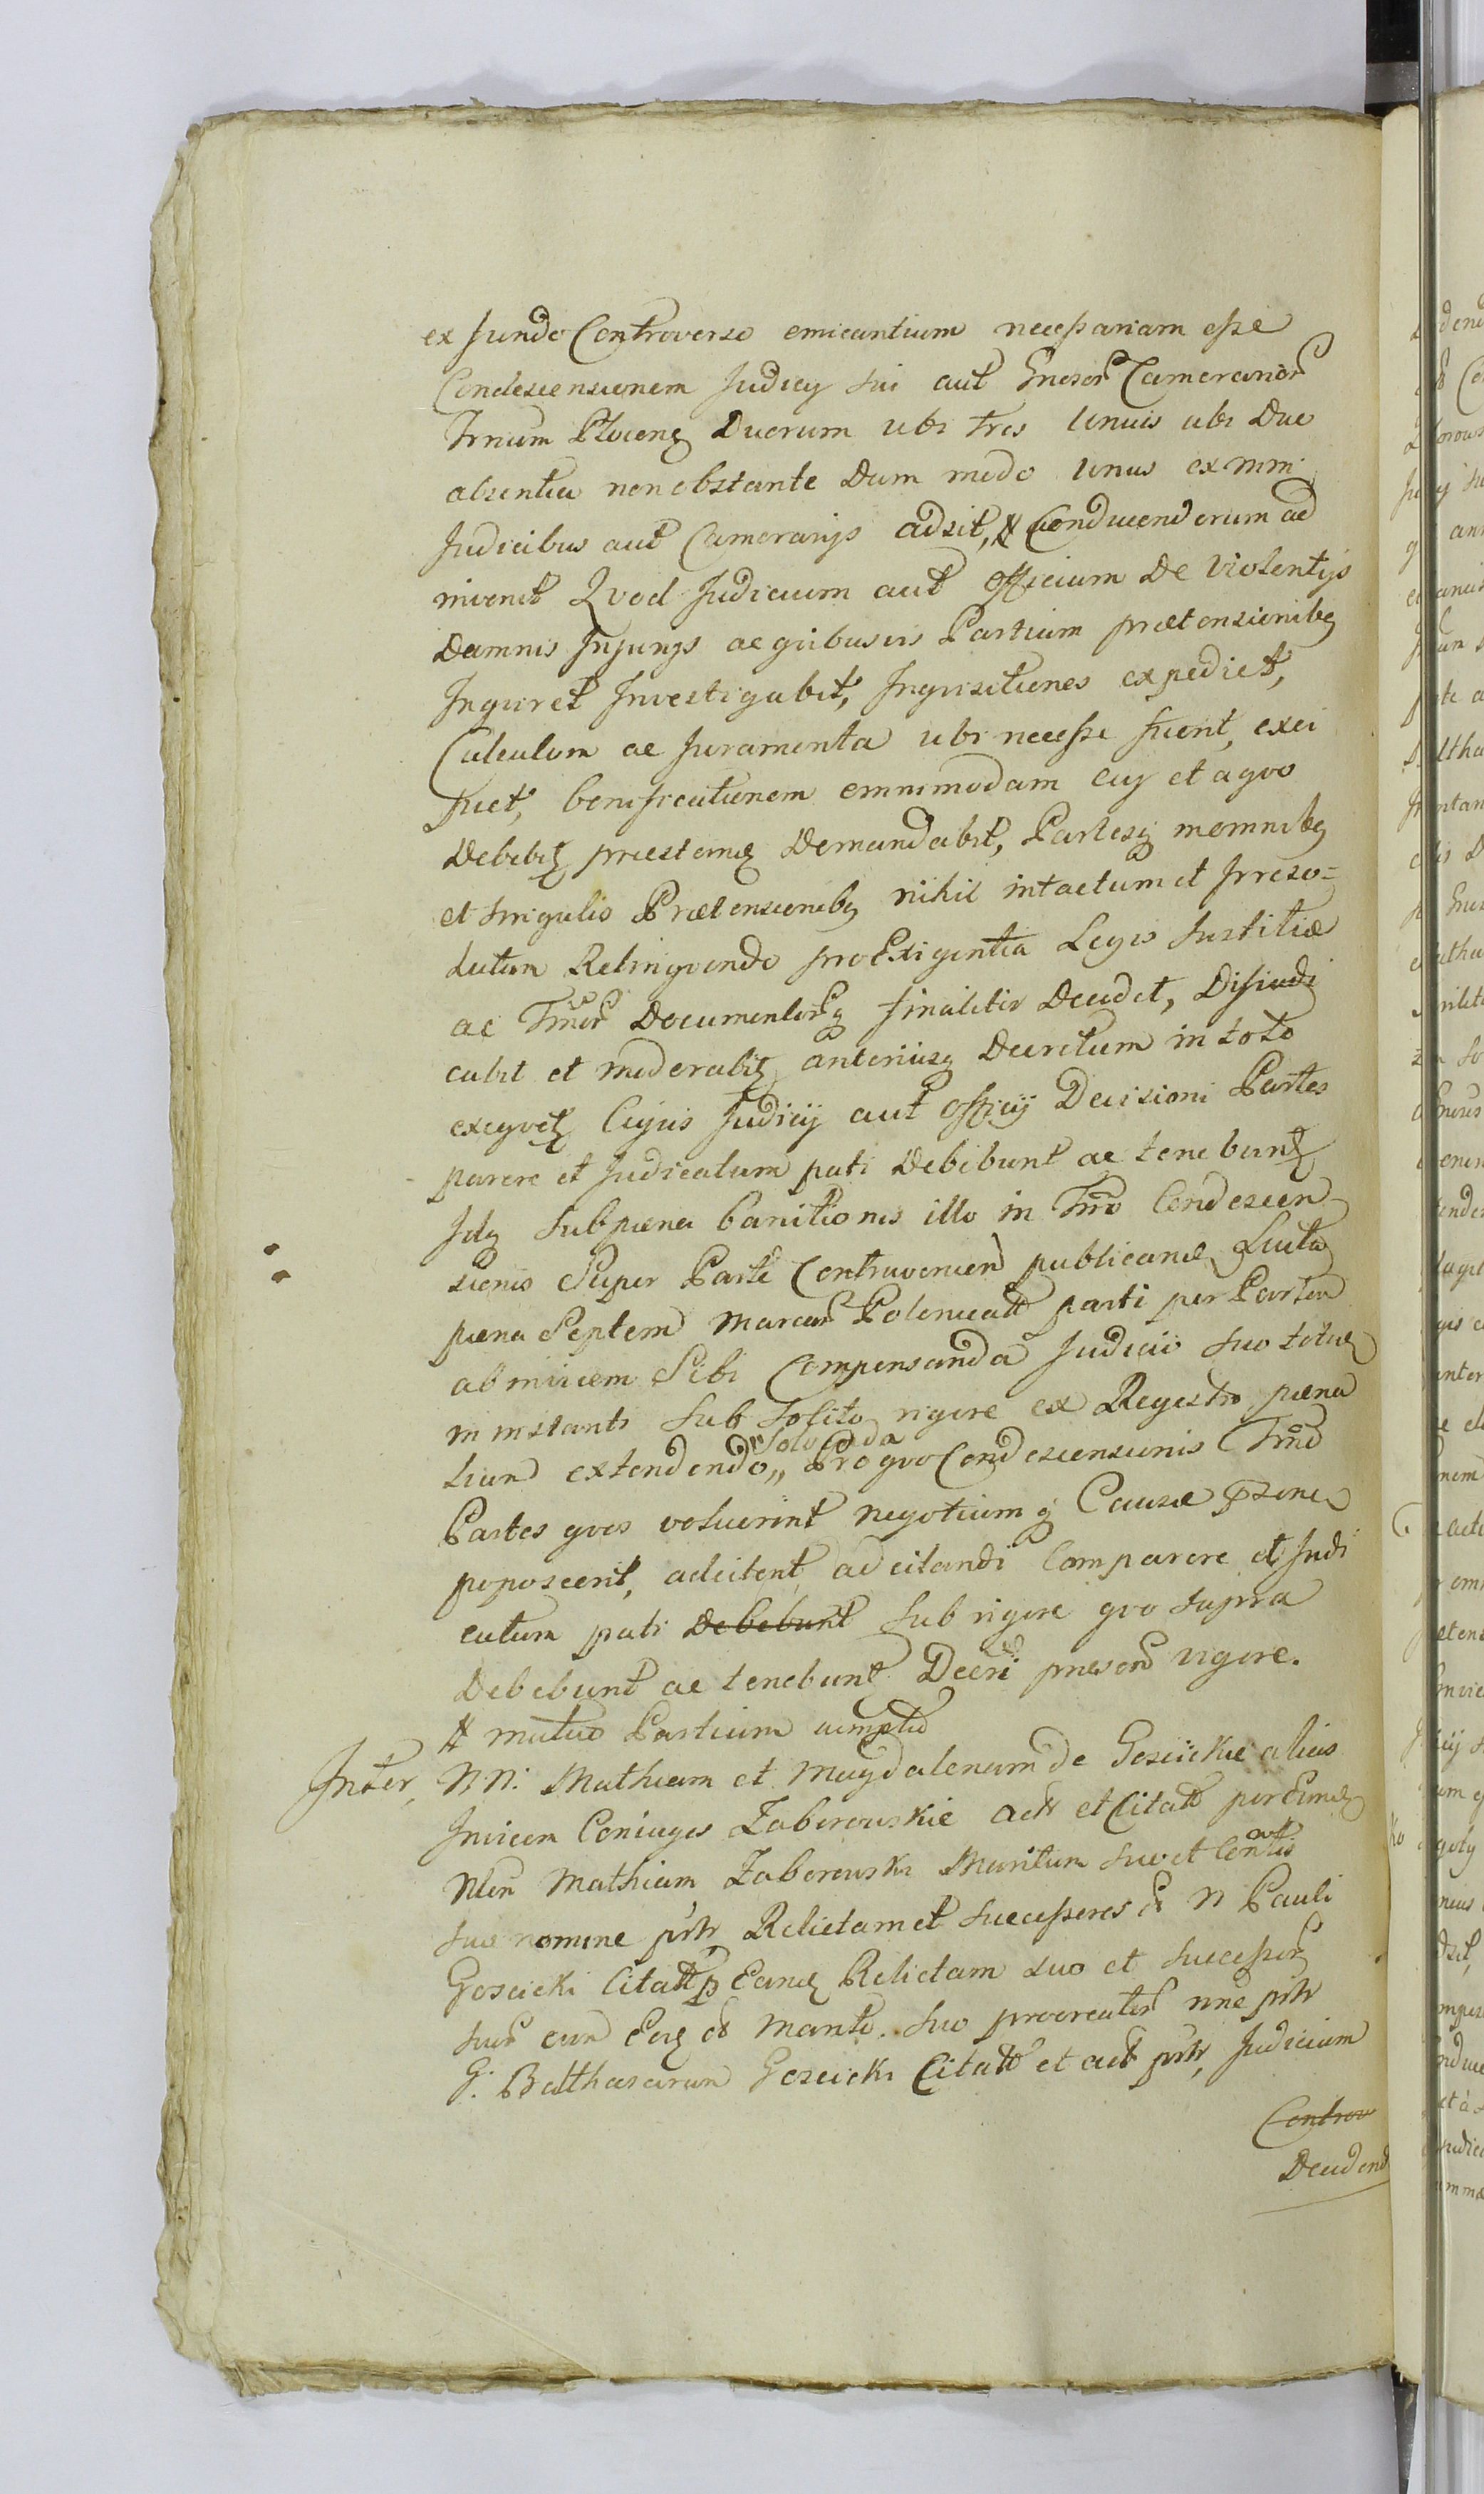 ex fundo Controverso emicantium necessariam esse
Condescensionem Judicy sui aut Gnosor Camerarior
Trnium Plocens Duorum ubi tres Unius ubi Duo
absentia non obstante Dum modo Unus ex mm
Judicibus aut Camerarijs adsit, # Conducendorum ad
invenit Quod Judicium aut Officium De Violentijs
Damnis Injurijs ac quibusvis Partium prætensionibq
Inquiret Investigabit, Inquisitiones expediet,
Calculum ac Juramenta ubi necesse fuerit, exci
piet, bonificationem omnimodam cuj et a quo
Debebit præstand Demandabit, Partesq in omnibq
et singulis Prætensionibq nihil intactum et Irreso=
lutum Relinquendo pro Exigentia Legis Justitiæ
ac Tmor Documentorq finaliter Decidet, Disiudi
cabit et moderabit anteriusq Decretum in toto
exequet Cujus Judicij aut Officij Decisioni Partes
parere et Judicatum pati Debebunt ac tenebunt
Idq Sub pæna banitionis illo in Tmo Condescen
sionis Super Parte Contravenien publicand Luita
pæna Septem Marcar Polonicatt parti per Partem
ab invicem Sibi Compensanda Judicio suo totius
in instanti Sub Solito rigore ex Regestro pæna
liun extendendo,, Pro quo Condescensionis Tmo
"Solvenda
Partes quos voluerint negotium q Causæ pzone
poposcerit, adcitent, adcitandi Comparere et Judi
catum pati Debebunt Sub rigore quo supra
Debebunt ac tenebunt Decri præsen vigore.
# mutuo Partium sumptu
Inter, N.N: Mathiam et Magdalenam de Goscickie alias
Invicem Coniuges Zaborowskie Act et Citatt per Eund
Nlen Mathiam Zaborowski Maritum suo et Contis
suæ nomine psntr Relictam et Successores G N Pauli
Goscicki Citatt p Eand Relictam suo et Successor
suor cum Eoq G Marito. suo procreator nne psntr
G. Balthasarum Goscicki Citatt et act psntr, Judicium
Controv
Decidend